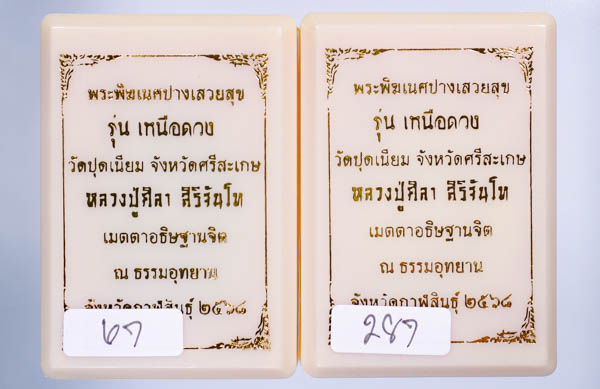 พระพิฆเนศปางเสวยสุข
รุ่น เหนือดวง
วัดปุดเนียม จังหวัดศรีสะเกษ
หลวงปู่ศิลา สิริจันโท
เมตตาอธิษฐานจิต
ณ ธรรมอุทยาน
จังหวัดกาฬสินธุ์ ๒๕๖๘
พระพิฆเนศปางเสวยสุข
รุ่น เหนือดวง
วัดปุดเนียม จังหวัดศรีสะเกษ
หลวงปู่ศิลา สิริจันโท
เมตตาอธิษฐานจิต
ณ ธรรมอุทยาน
จังหวัดกาฬสินธุ์ ๒๕๖๘